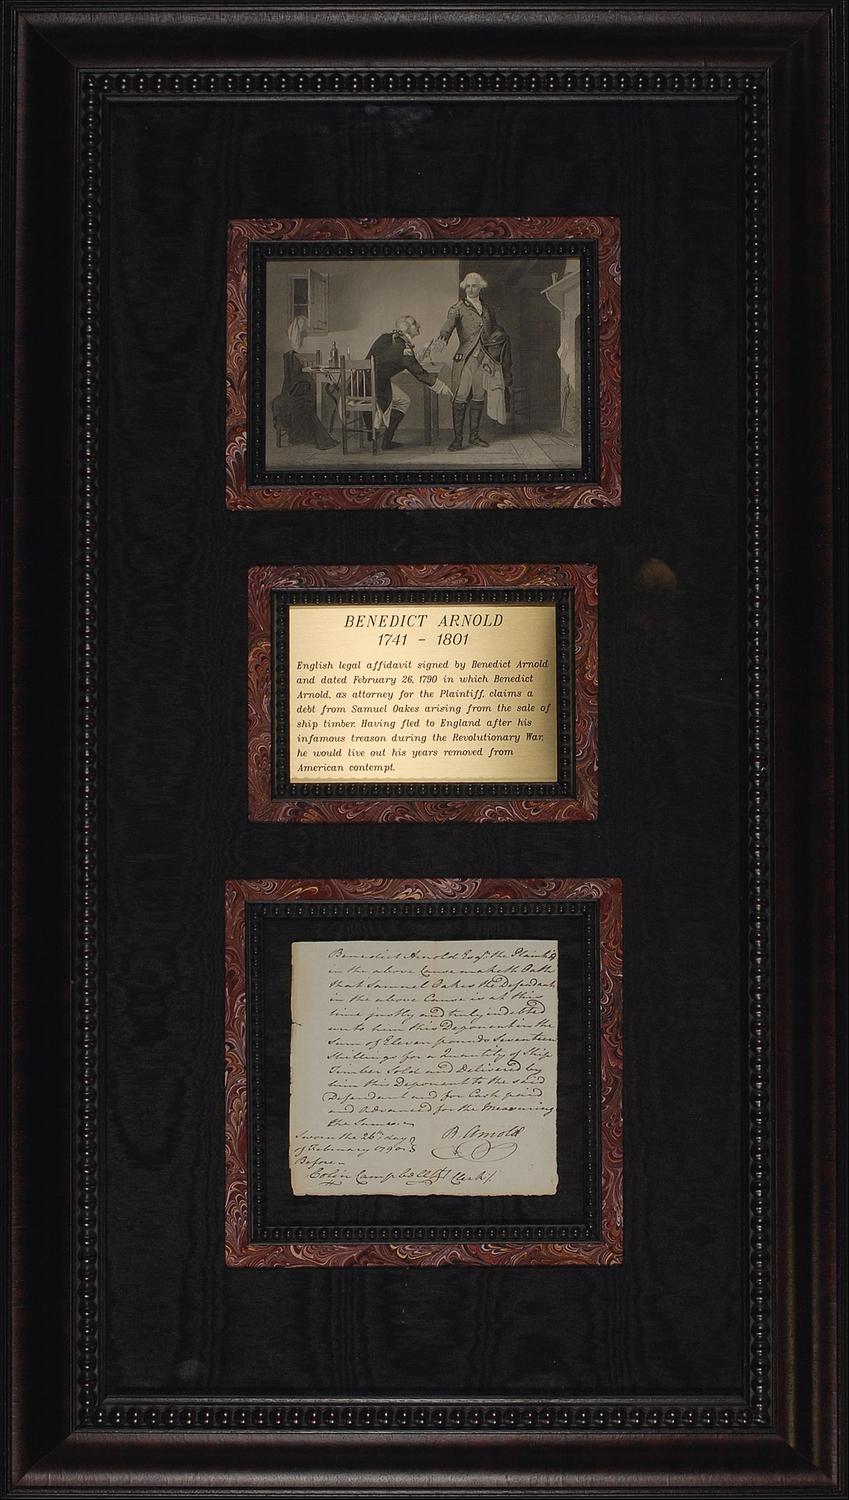 BENEDICT ARNOLD
1741 - 1801
English legal affidavit signed by Benedict Arnold
and dated February 26, 1790 in which Benedict
Arnold, as attorney for the Plaintiff, claims a
debt from Samuel Oakes arising from the sale of
ship timber. Having fled to England after his
infamous treason during the Revolutionary War,
he would live out his years removed from
American contempt.
Benedict Arnold Esqr. the Plaintiff
in the above Cause maketh Oath
that Samuel Oakes the Defendant
in the above Cause is at this
time justly and truly indebted
unto him this Deponent in the
Sum of Eleven pounds Seventeen
Shillings for a Quantity of Ship
Timber Sold and Delivered by
him this Deponent to the said
Defendant and for Cash paid
and advanced for the Measuring
the Same.
Sworn the 26th day
of February 1790
Before
B Arnold
Colin Campbell Clerk